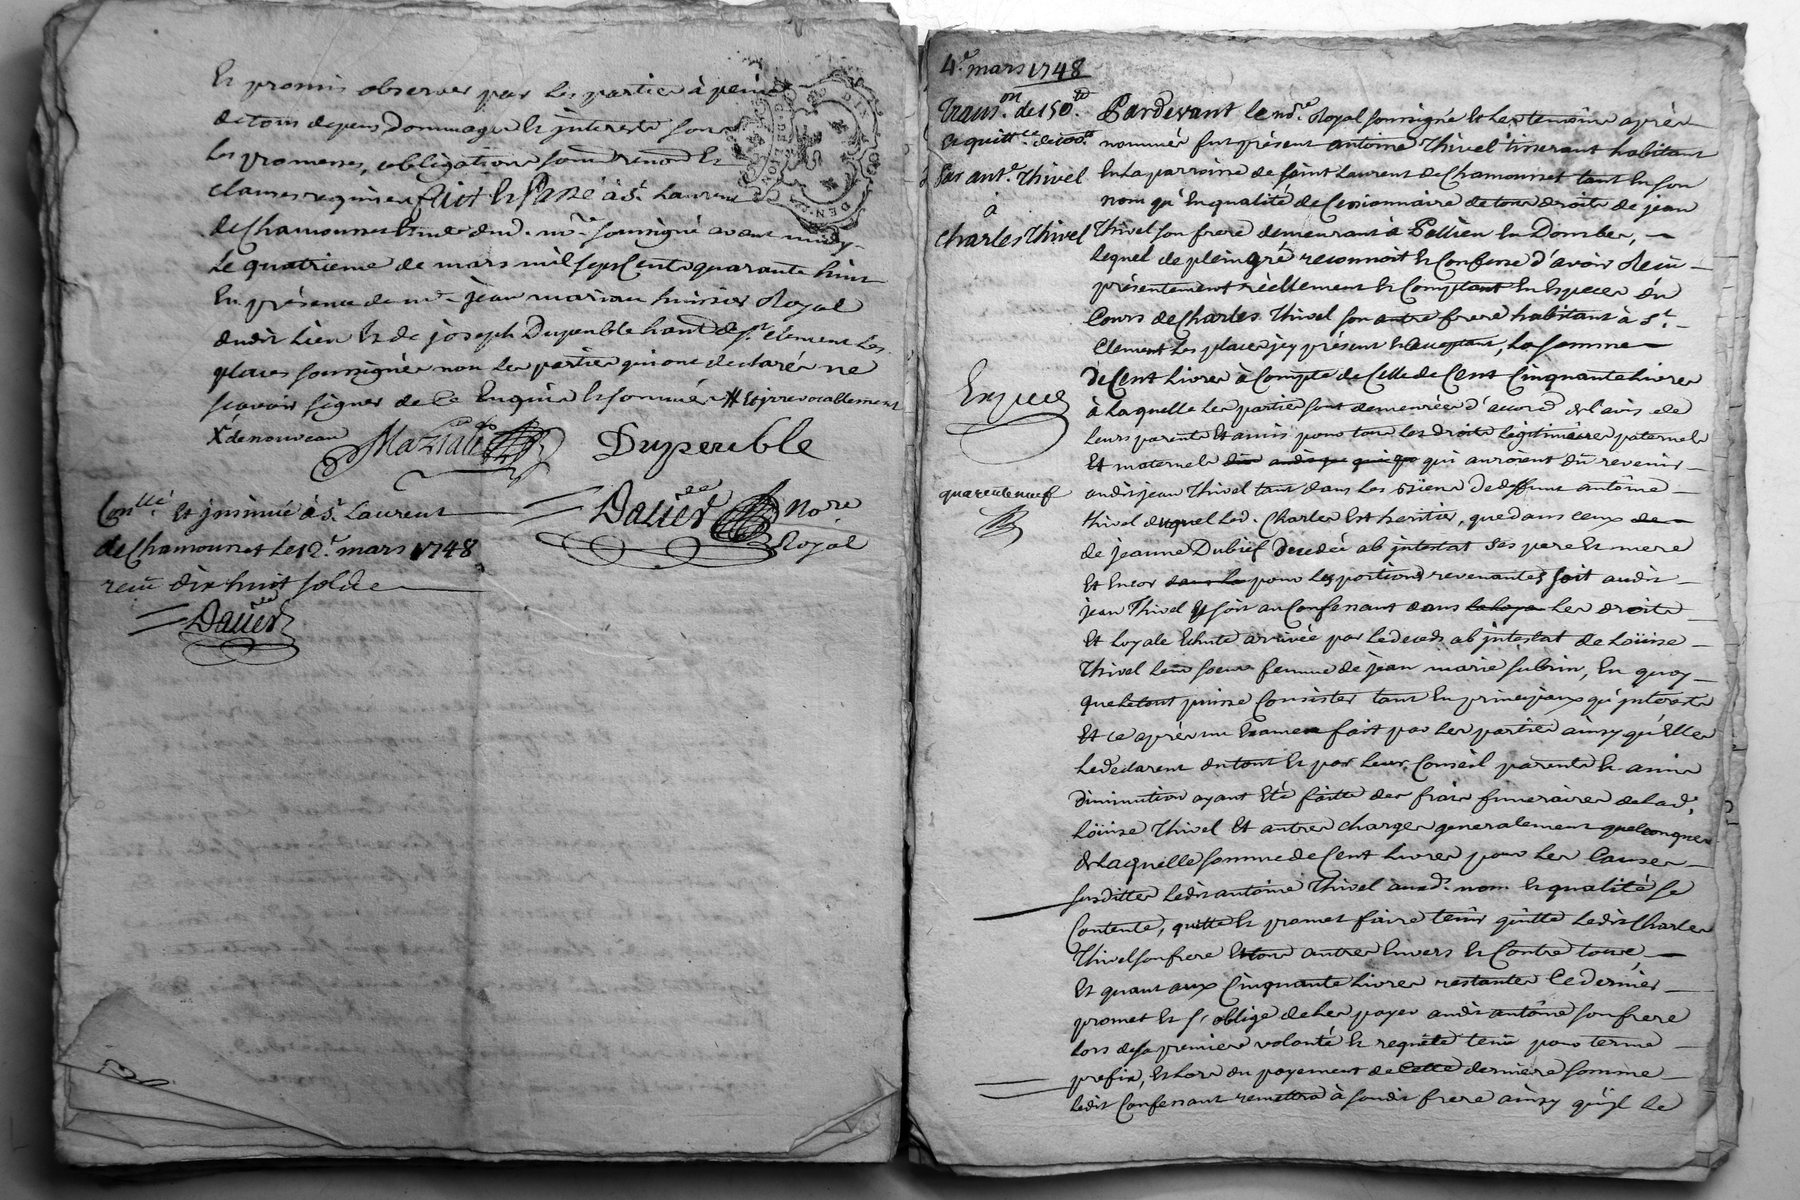 Et promis observer par les parties à peine
de tous depens Dommages et interests sous
les promesses, obligations soum.ons renon.ons Et
clauses requises fait Et Passé à St. Laurent
de Chamousset Etude dud. no.re soussigné avant midy
le quatrieme de mars mil sept Cents quarante huit
En présence de m.e jean maziau huissier Royal
dudit Lieu Et de joseph Duperible hant. de St. Clement les
places soussignés non les parties qui ont declarés ne
scavoir signer de Ce Enquis Et sommés # Et irrevocablement
X de nouveau
Duperible
Dauier No.re
Royal
Con.llé Et insinué à St. Laurent
de Chamousset Le 12.e mars 1748
reçu dix huit sols
Dauier
4.e mars 1748
Trans.on de 150.tt
et quitt.ce de 100.tt
Par ant.e Thivel
à
Charles Thivel
Expédié
quarante neuf
Pardevant le no.re Royal soussigné Et les temoins après
nommés fut présent antoine Thivel tisserant habitant
En la parroisse de saint Laurent de Chamousset tant En son
nom qu'En qualité de Cessionnaire de tous droits de jean
Thivel son frere demeurant à Pollieu En Dombes,
lequel de plein gré reconnoit Et Confesse d'avoir Reçu
présentement réellement Et Comptant En Especes du
Cours de Charles Thivel son autre frere habitant à St.
Clement les places jcy présent Et acceptant, la somme
de Cent Livres à Compte de Celle de Cent Cinquante Livres
à Laquelle les parties sont demeurées d'acord de l'avis de
leurs parents Et amis pour tous les droits légitimaires paternels
Et maternels qui auroient dû revenir
audit jean Thivel tant dans les Biens de deffunt antoine
thivel duquel led. Charles Est heritier, que dans ceux
de jeanne Dubief decedés ab intestat ses pere Et mere
Et Encor pour les portions revenantes soit audit
jean Thivel Et soit au Confessant dans les droits
Et hoyrie Echute arrivée par le deceds ab intestat de Loüise
Thivel leur soeur femme de jean marie subrin, En quoy
que le tout puisse Consister tant En principaux qu'interests
Et ce après un Examen fait par les parties ainsy qu'Elles
le declarent du tout Et par leurs Conseil parents Et amis
diminution ayant Eté faitte des frais funeraires de lad.
Loüise Thivel Et autres charges generalement quelconques
de Laquelle somme de Cent Livres pour les Causes
susdittes ledit antoine Thivel ausd. nom Et qualité se
Contente, quitte Et promet faire tenir quitte ledit Charles
Thivel son frere Et tous autres Envers Et Contre tous,
Et quant aux Cinquante Livres restantes Ce dernier
promet Et s'oblige de les payer audit antoine son frere
lors de sa premiere volonté Et requête tenu pour terme
prefix, Et lors du payement de Cette derniere somme
ledit Confessant remettra à sondit frere ainsy qu'il le